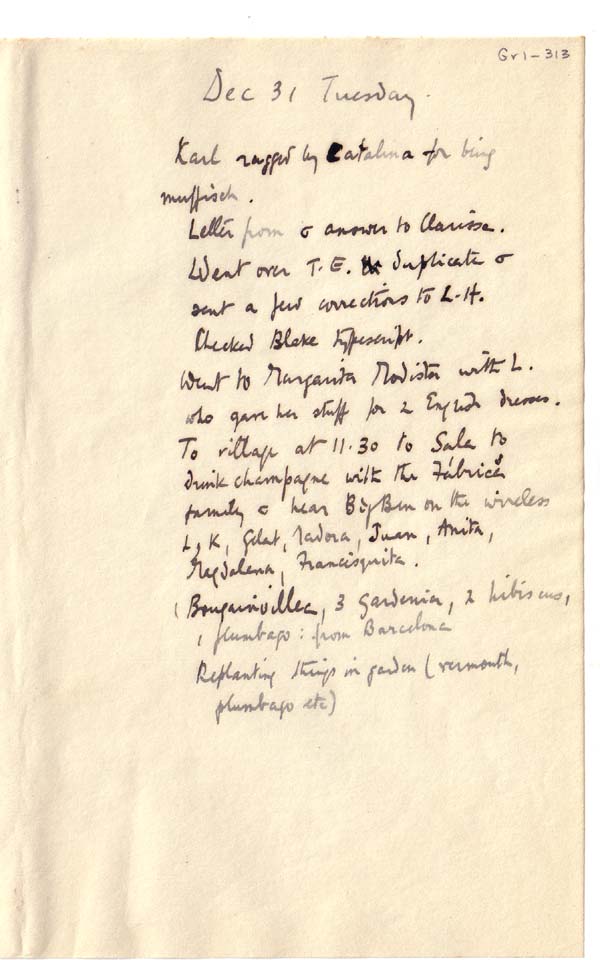 Gr1-313
Dec 31 Tuesday.
Karl ragged by Catalina for being
muffisch.
Letter from & answer to Clarissa.
Went over T.E. duplicate &
sent a few corrections to L-H.
Checked Blake typescript.
Went to Margarita Modista with L.
who gave her stuff for 2 English dresses.
To village at 11.30 to Sala to
drink champagne with the Fábrica
family & hear Big Ben on the wireless
L, K, Gelat, Isadora, Juan, Anita,
Magdalena, Francisquita.
1 Bougainvillea, 3 gardenia, 2 hibiscus,
1 plumbago: from Barcelona
Replanting things in garden (vermouth,
plumbago etc)